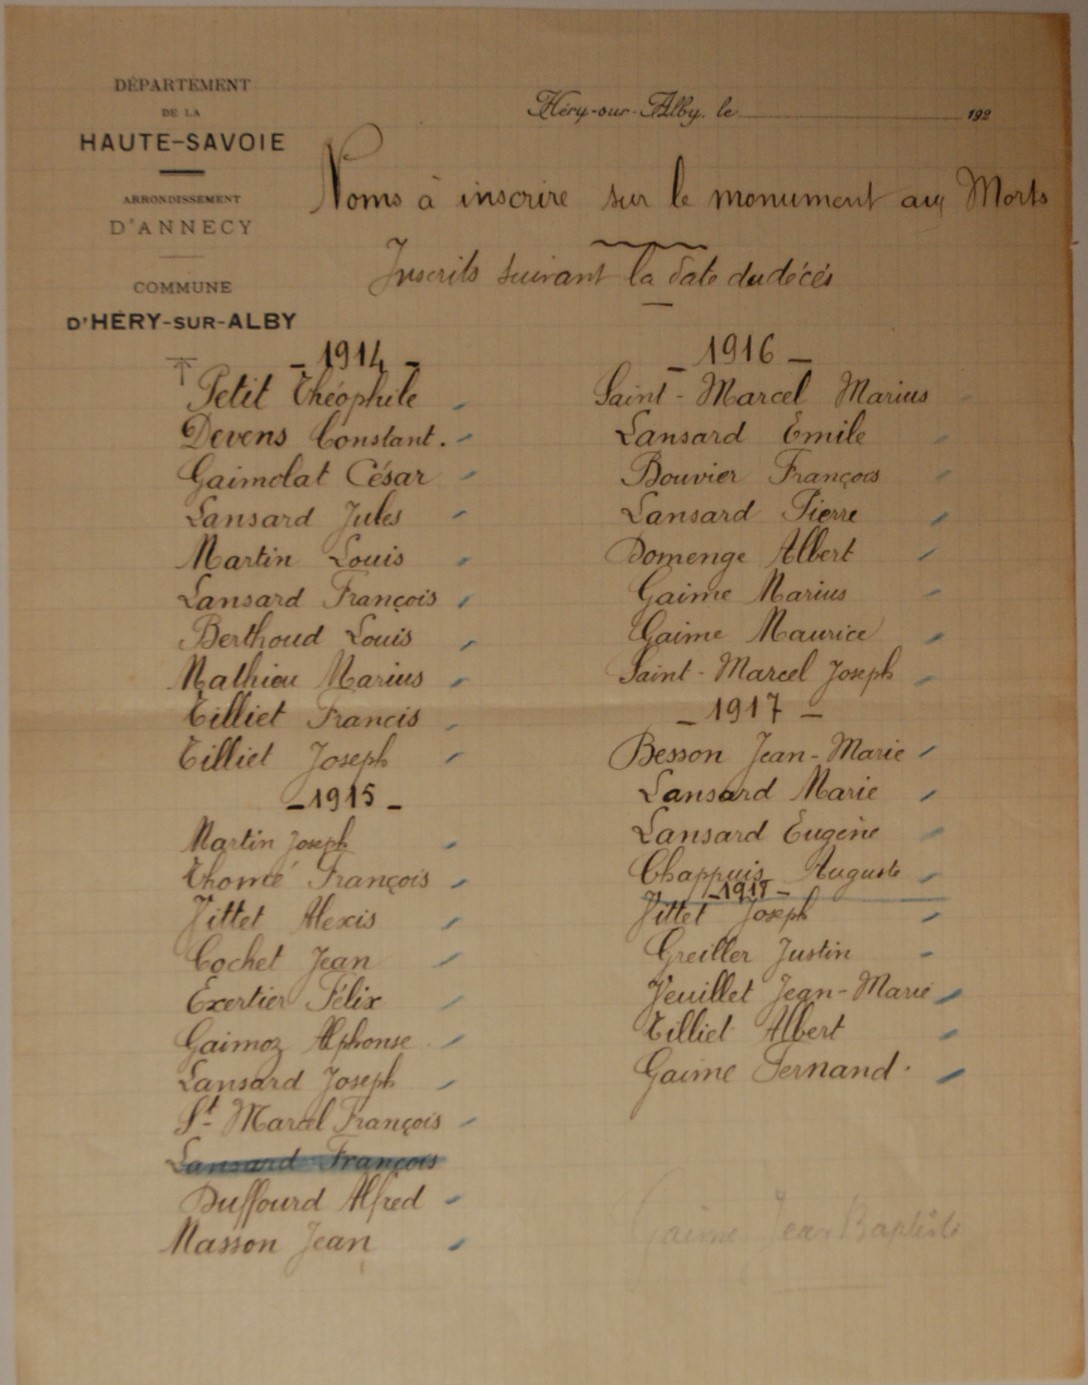 DÉPARTEMENT
DE LA
HAUTE-SAVOIE
ARRONDISSEMENT
D'ANNECY
COMMUNE
D'HÉRY-SUR-ALBY
Héry-sur-Alby, le 192
Noms à inscrire sur le monument aux Morts
Inscrits suivant la date du décés
- 1914 -
Petit Théophile
Devens Constant.
Gaimolat César
Lansard Jules
Martin Louis
Lansard François
Berthoud Louis
Mathieu Marius
Tilliet Francis
Tilliet Joseph
- 1915 -
Martin Joseph
Thomé François
Vittet Alexis
Cochet Jean
Exertier Félix
Gaimoz Alphonse
Lansard Joseph
St Marcel François
Lansard François
Duffourd Alfred
Masson Jean
- 1916 -
Saint-Marcel Marius
Lansard Emile
Bouvier François
Lansard Pierre
Domenge Albert
Gaime Marius
Gaime Maurice
Saint-Marcel Joseph
- 1917 -
Besson Jean-Marie
Lansard Marie
Lansard Eugène
Chappuis Auguste
- 1918 -
Vittet Joseph
Greiller Justin
Veuillet Jean-Marie
Tilliet Albert
Gaime Fernand.
Gaime Jean Baptiste